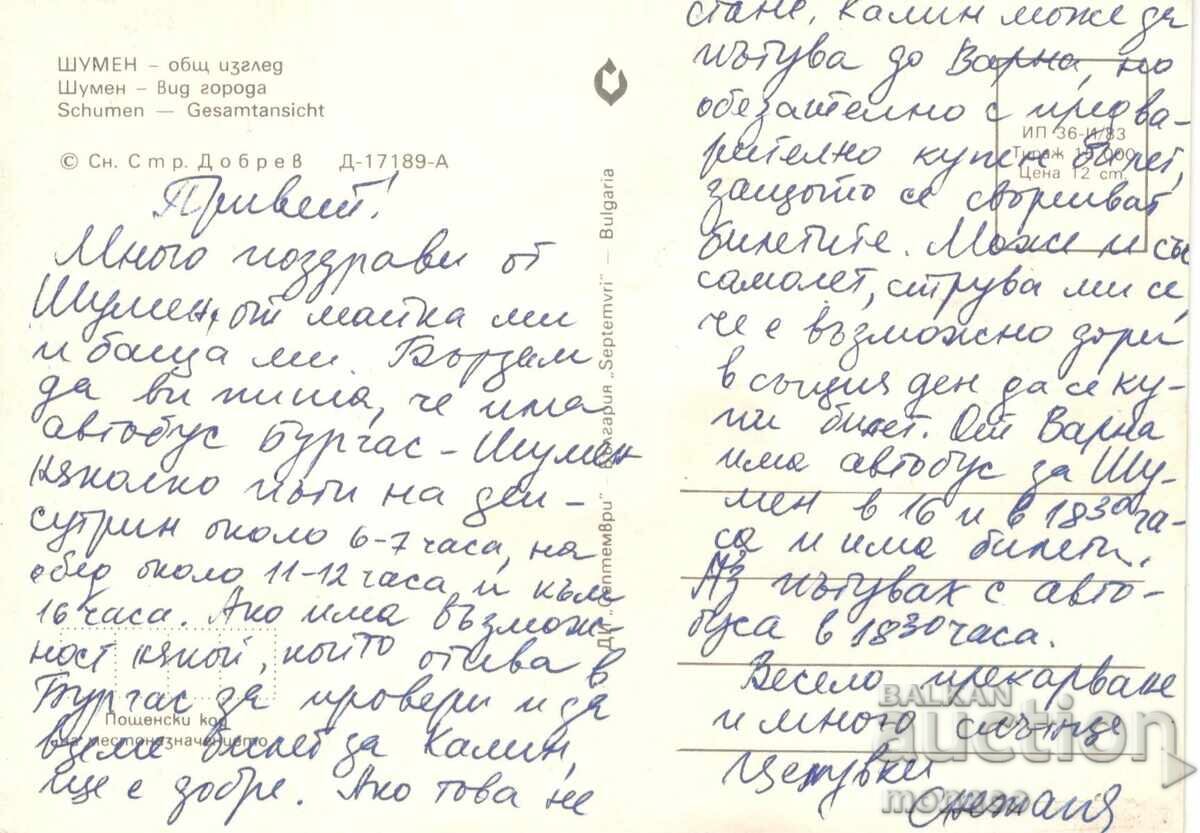 ШУМЕН – общ изглед
Шумен – Вид города
Schumen — Gesamtansicht
© Сн. Стр. Добрев Д-17189-А
Привет!
Много поздрави от
Шумен, от майка ми
и баща ми. Бързам
да ви пиша, че има
автобус Бургас – Шумен
няколко пъти на ден –
сутрин около 6-7 часа, на
обед около 11-12 часа и към
16 часа. Ако има възмож-
ност някой, който отива в
Бургас да провери и да
вземе билет за Калин,
ще е добре. Ако това не
Пощенски код
на местоназначението
ДИ „Септември" – България „Septemvri" – Bulgaria
стане, Калин може да
пътува до Варна, но
обезателно с предва-
рително купен билет,
защото се свършват
билетите. Може и със
самолет, струва ми се,
че е възможно дори
в същия ден да се ку-
пи билет. От Варна
има автобус за Шу-
мен в 16 и в 18 30 ча-
са и има билети.
Аз пътувах с авто-
буса в 18 30 часа.
Весело прекарване
и много слънце
Целувки
Снежана
ИП 36-И/83
Тираж 15 000
Цена 12 ст.
BALKAN
auction